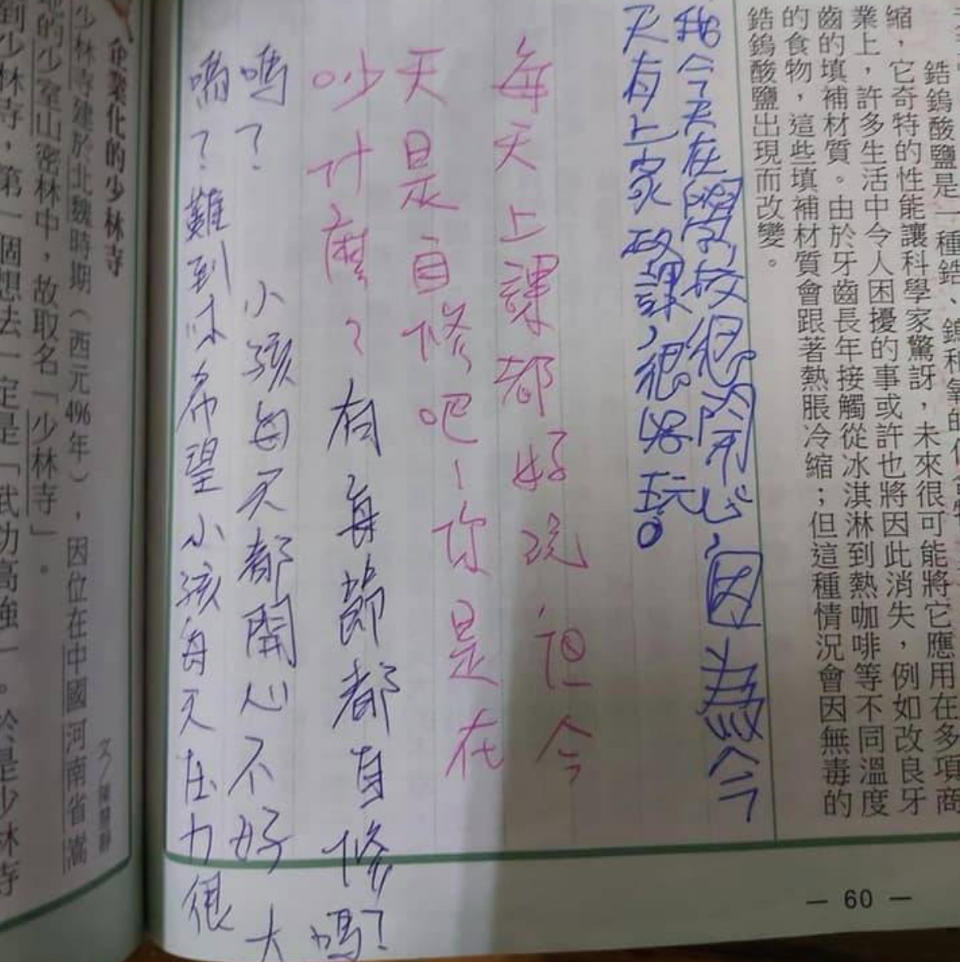 鋯鎢酸鹽是一種鋯、鎢和氧的
縮，它奇特的性能讓科學家驚訝，未來很可能將它應用在多項商
業上，許多生活中令人困擾的事或許也將因此消失，例如改良牙
齒的填補材質。由於牙齒長年接觸從冰淇淋到熱咖啡等不同溫度
的食物，這些填補材質會跟著熱脹冷縮；但這種情況會因無毒的
鋯鎢酸鹽出現而改變。
我今天在學校很開心，因為今
天有上家政課，很好玩。
每天上課都好玩但今
天是自修吧！你是在
吵什麼？有每節都自修嗎？
嗎？小孩每天都開心不好大
嗎？難到你希望小孩每天在力很
— 60 —
企業化的少林寺
文／陳
少林寺建於北魏時期（西元496年），因位在中國河南省嵩
的少室山密林中，故取名「少林寺」。
到少林寺，第一個想去一定是「武功高強」。於是少林寺